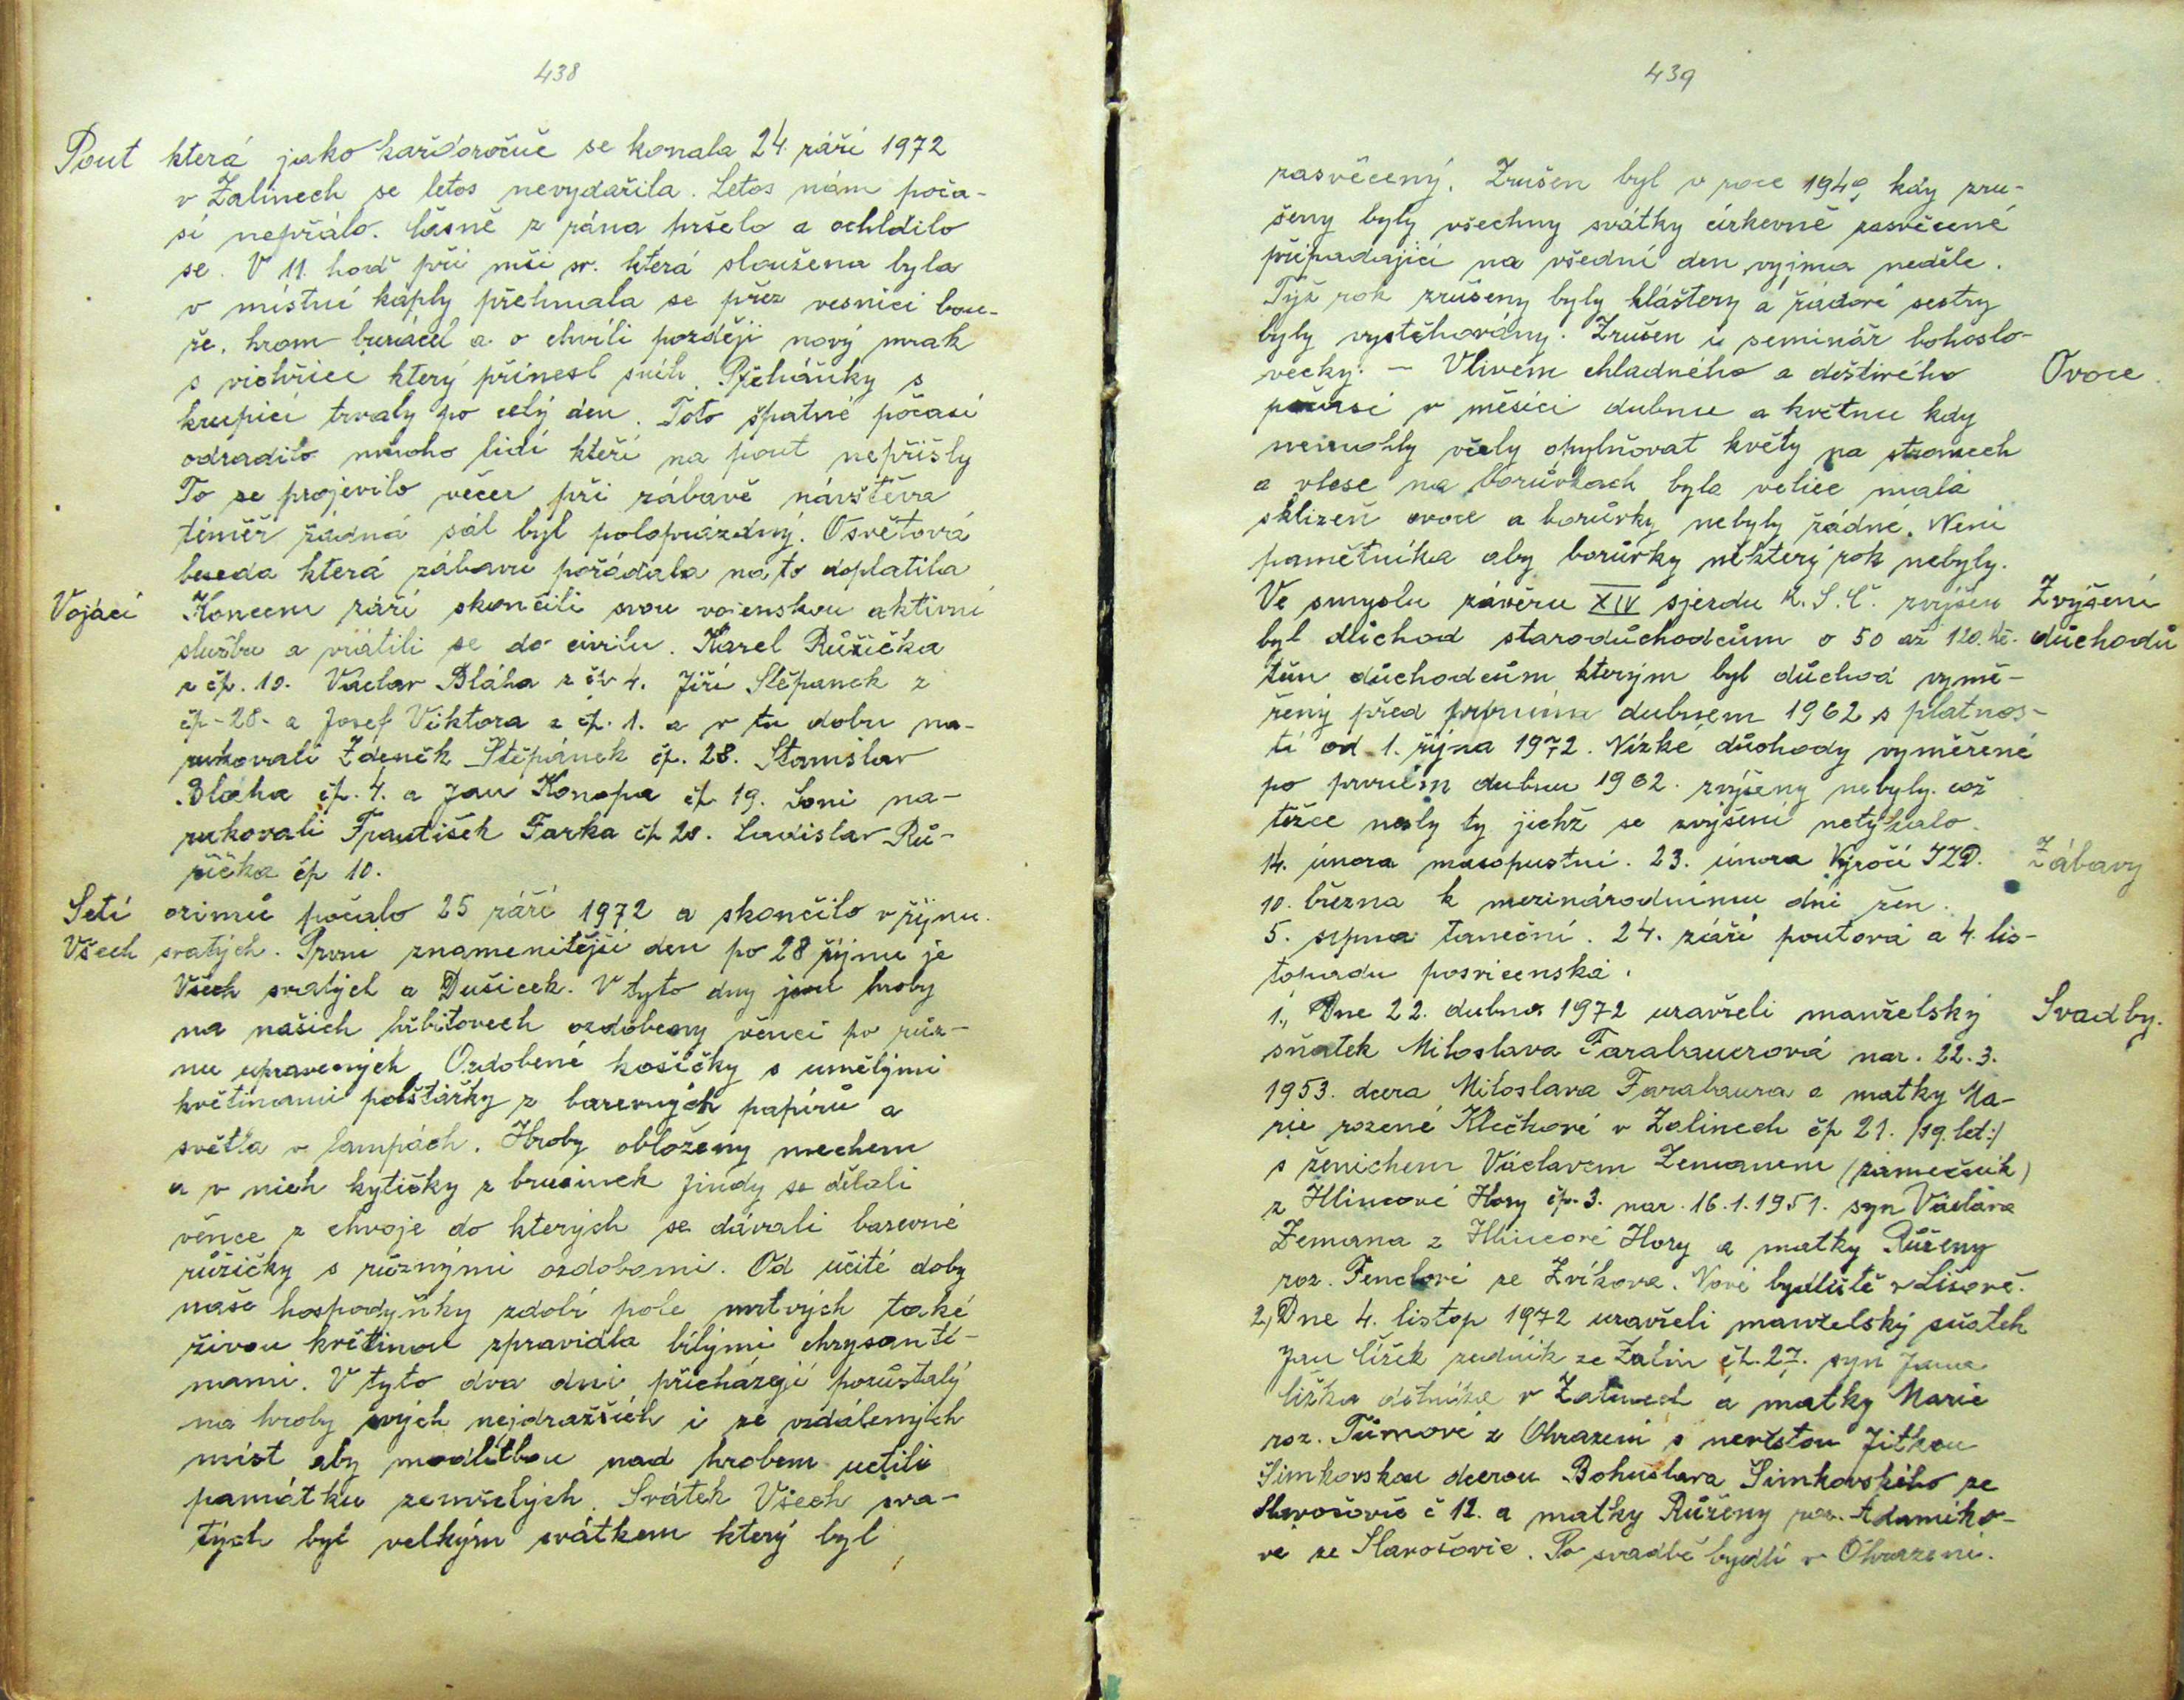 438
Pout která jako každoročně se konala 24. září 1972
v Žalínech se letos nevydařila. Letos nám poča-
sí nepřálo. Časně z rána pršelo a ochldilo
se. V 11. hod při mši sv. která sloužena byla
v místní káply přehnala se přez vesnici bou-
ře, hrom burácel a o chvíli později nový mrak
s vichřicí který přinesl sníh. Přeháňky s
krupicí trvaly po celý den. Toto špatné počasí
odradilo mnoho lidí kteří na pout nepřišly
To se projevilo večer při zábavě návštěva
téměř žádná sál byl poloprázdný. Osvětová
beseda která zábavu pořádala na to doplatila
Vojáci Koncem září skončili svou vojenskou aktivní
službu a vrátili se do civilu. Karel Růžička
z čp. 10. Václav Bláha z čp 4. Jiří Stěpanek z
čp-28- a Josef Viktora z čp. 1. a v tu dobu na-
rukovali Zdeněk Štěpánek čp. 28. Stanislav
Bláha čp. 4. a Jan Konopa čp 19. Loni na-
rukovali František Farka čp 20. Ladislav Rů-
žička čp 10.
Setí ozimů počalo 25 září 1972 a skončilo v říjnu.
Všech svatých. Prvni znamenitější den po 28 říjnu je
Všech svatých a Dušicek. V tyto dny jsou hroby
na našich hřbitovech ozdobeny věnci po růz-
nu upravených. Ozdobené košíčky s umělými
květinami polštářky z barevných papírů a
světla v lampách. Hroby obloženy mechem
a v nich kytičky z brusinek jindy se dělali
věnce z chvoje do kterých se dávali barevné
růžičky s různými ozdobami. Od učité doby
naše hospodyňky zdobí pole mrtvých také
živou květinou zpravidla bílými chrysanté-
mami. V tyto dva dni přicházejí pozůstalý
na hroby svých nejdražších i ze vzdálených
míst aby modlitbou nad hrobem uctili
památku zemřelých. Svátek Všech sva-
tých byl velkým svátkem který byl
439
zasvěcený. Zrušen byl v roce 1949 kdy zru-
šeny byly všechny svátky církevně zasvěcené
připadající na všední den vyjma neděle.
Týž rok zrušeny byly kláštery a řádové sestry
byly vystěhovány. Zrušen i seminář bohoslo-
vecký. - Vlivem chladného a deštivého Ovoce
počasí v měsíci dubnu a květnu kdy
nemohly včely opylňovat květy na stromech
a vlese na borůvkach byla velice malá
sklizeň ovoce a borůvky nebyly žádné. Není
pamětníka aby borůvky některý rok nebyly.
Ve smyslu závěru XIV sjezdu K.S.Č. zvýšen Zvýšení
byl důchod starodůchodcům o 50 až 120.Kč. důchodů
těm důchodcům kterým byl důchod vymě-
řený před prvním dubnem 1962 s platnos-
tí od 1. října 1972. Nízké důchody vyměřené
po prvním dubnu 1962. zvýšeny nebyly. což
těžce nesly ty jichž se zvýšení netýkalo.
14. února masopustní. 23. února Výročí JZD. Zábavy
10. března k mezinárodnímu dni žen.
5. srpna taneční. 24. září poutová a 4. lis-
topadu posvicenská.
1., Dne 22. dubna 1972 uzavřeli manželský Svadby.
sňatek Miloslava Farabauerová nar. 22.3.
1953. dcera Miloslava Farabaura a matky Ma-
rie rozené Klečkové v Zalinech čp 21. /19. let:/
s ženichem Václavem Zemanem (zámečník)
z Hlincové Hory čp. 3. nar. 16.1.1951. syn Václava
Zemana z Hlincové Hory a matky Růženy
roz. Fenclové ze Zvíkova. Nové bydliště v Lišově.
2, Dne 4. listop 1972 uzavřeli manželský sňatek
Jan Čížek zedník ze Zalin čp. 27. syn Jana
Čížka dělníka v Zalinech a matky Marie
roz. Tůmové z Ohrazení s nevěstou Jitkou
Šimkovskou dcerou Bohuslava Šimkovského ze
Slavošovic č 12. a matky Růženy roz. Adamíko-
vé ze Slavošovic. Po svadbě bydlí v Ohrazeni.